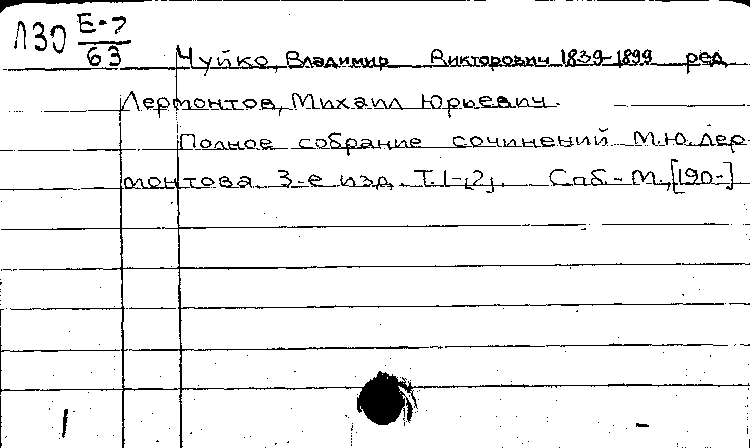 Л30 Е-7
63
Чуйко, Владимир Викторович 1839-1899 ред
Лермонтов, Михаил Юрьевич.
Полное собрание сочинений М.Ю. Лер-
монтова. 3-е изд. Т. 1-[2]. Спб.-М., [190-]